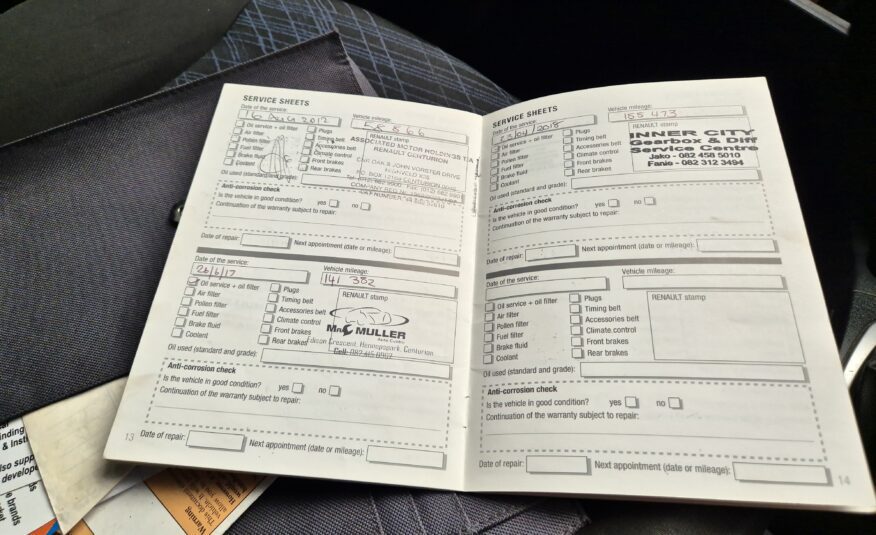 SERVICE SHEETS
Date of the service:
Vehicle mileage:
16 Aug 2012
Oil service + oil filter
Air filter
Pollen filter
Fuel filter
Brake fluid
Coolant
Plugs
Timing belt
Accessories belt
Climate control
Front brakes
Rear brakes
RENAULT stamp
ASSOCIATED MOTOR HOLDINGS T/A
RENAULT CENTURION
Oil used (standard and grade):
Anti-corrosion check
Is the vehicle in good condition? yes no
Continuation of the warranty subject to repair:
Date of repair:
Next appointment (date or mileage):
Date of the service:
Vehicle mileage:
26/6/17
141 382
Oil service + oil filter
Air filter
Pollen filter
Fuel filter
Brake fluid
Coolant
Plugs
Timing belt
Accessories belt
Climate control
Front brakes
Rear brakes
RENAULT stamp
MULLER
Crescent, Hennopspark, Centurion
Oil used (standard and grade):
Anti-corrosion check
Is the vehicle in good condition? yes no
Continuation of the warranty subject to repair:
13
Date of repair:
Next appointment (date or mileage):
SERVICE SHEETS
Date of the service:
Vehicle mileage:
23/04/2018
155 473
Oil service + oil filter
Air filter
Pollen filter
Fuel filter
Brake fluid
Coolant
Plugs
Timing belt
Accessories belt
Climate control
Front brakes
Rear brakes
RENAULT stamp
INNER CITY
Gearbox & Diff
Service Centre
Jako - 082 458 5010
Fanie - 082 312 3494
Oil used (standard and grade):
Anti-corrosion check
Is the vehicle in good condition? yes no
Continuation of the warranty subject to repair:
Date of repair:
Next appointment (date or mileage):
Date of the service:
Vehicle mileage:
Oil service + oil filter
Air filter
Pollen filter
Fuel filter
Brake fluid
Coolant
Plugs
Timing belt
Accessories belt
Climate control
Front brakes
Rear brakes
RENAULT stamp
Oil used (standard and grade):
Anti-corrosion check
Is the vehicle in good condition? yes no
Continuation of the warranty subject to repair:
Date of repair:
Next appointment (date or mileage):
14
Warning